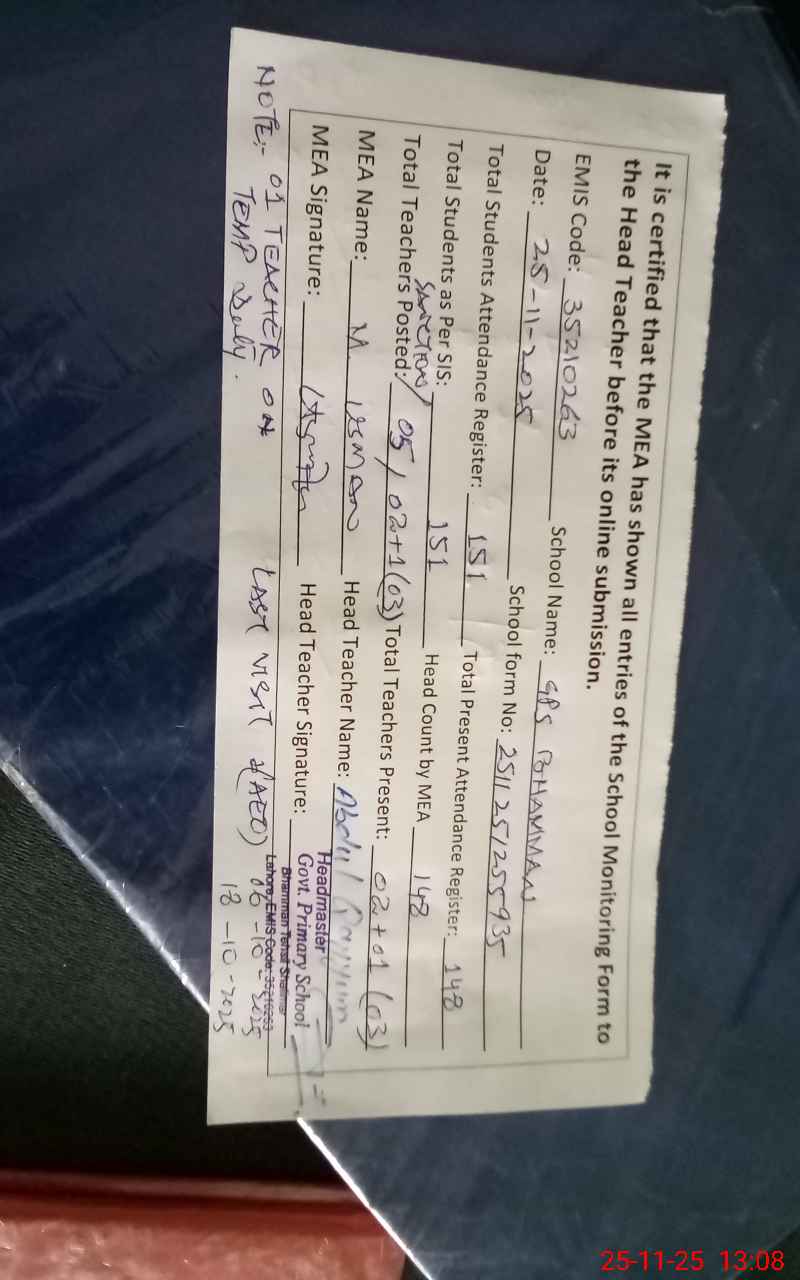 It is certified that the MEA has shown all entries of the School Monitoring Form to
the Head Teacher before its online submission.
EMIS Code: 35210263 School Name: GPS BHAMMAN
Date: 25-11-2025 School form No: 251125125935
Total Students Attendance Register: 151 Total Present Attendance Register: 148
Total Students as Per SIS: 151 Head Count by MEA 148
Sanction/
Total Teachers Posted: 05 / 02+1 (03) Total Teachers Present: 02+01 (03)
MEA Name: M USMAN Head Teacher Name: Abdul Qayyum
MEA Signature: Head Teacher Signature:
Headmaster
Govt. Primary School
Bhamman Tehsil Shalimar
Lahore, EMIS Code: 35210263
NOTE:- 01 TEACHER ON LAST VISIT (AEO) 06-10-2025
TEMP Duty. 18-10-2025
25-11-25 13:08